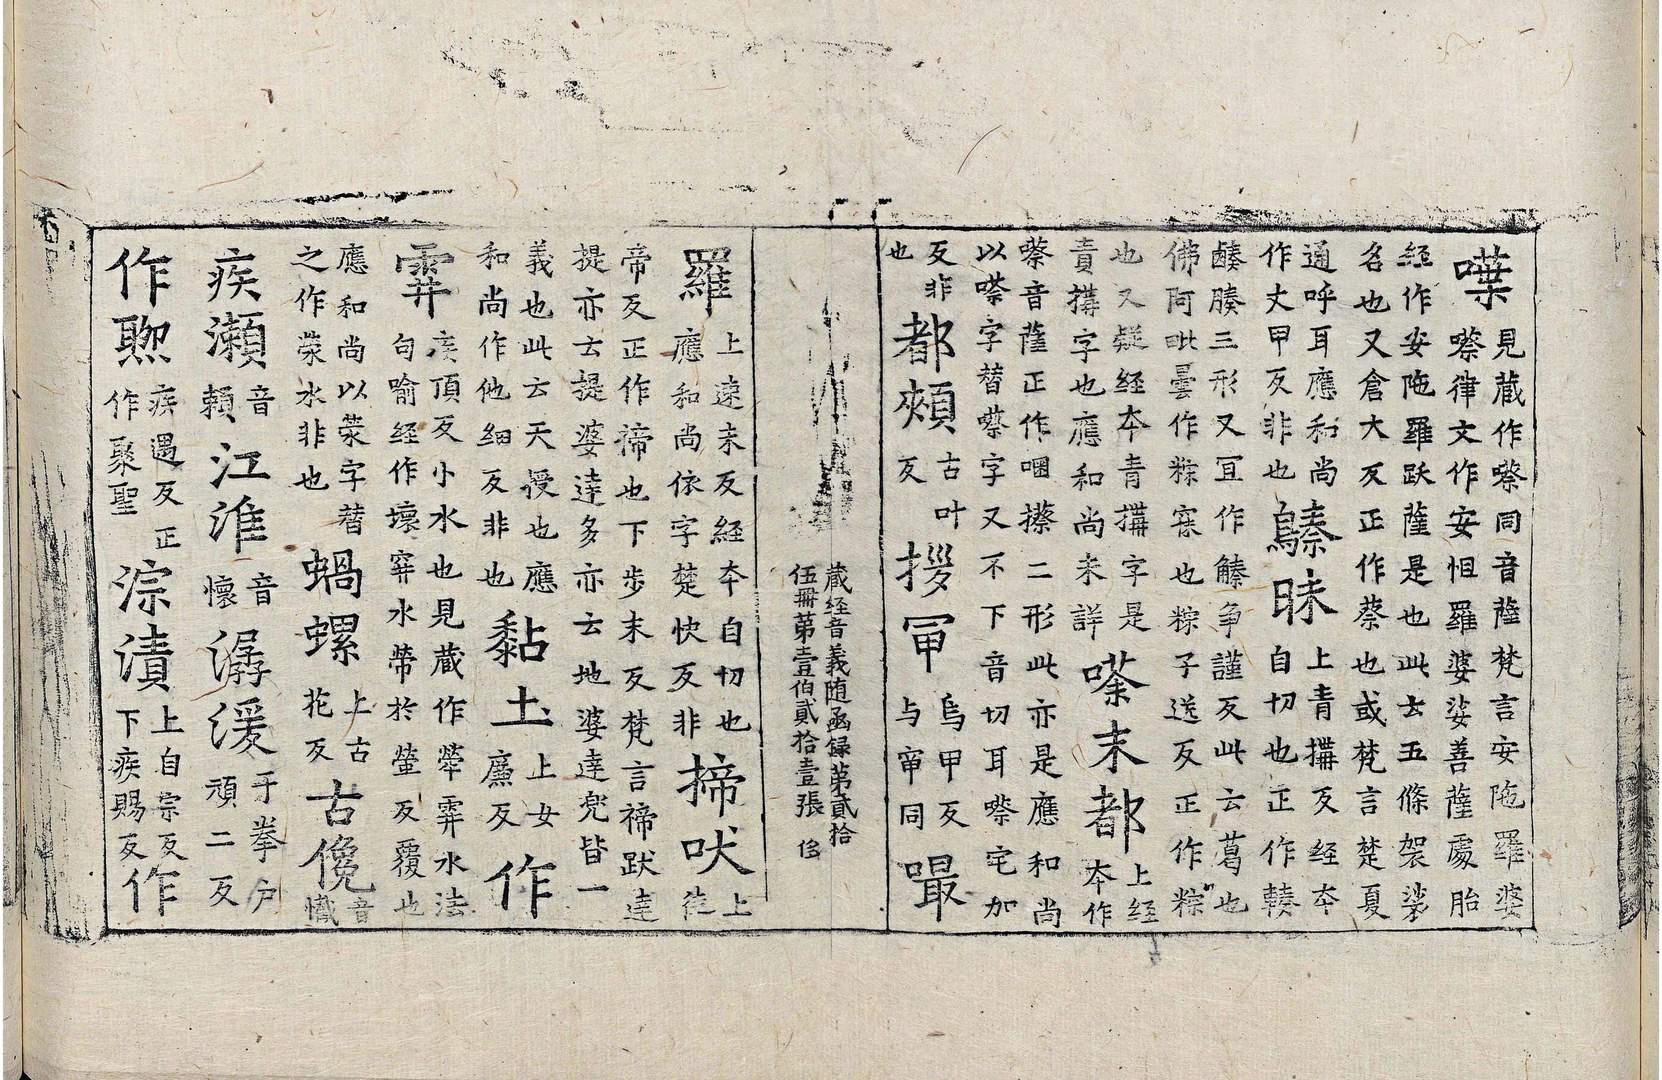 見蔵作嚓同音薩梵言安陁羅婆
嚓律文作安怛羅婆娑善薩處胎
經作安陁羅跃薩是也此云五條袈裟
名也又倉大反正作蔡也或梵言楚夏
通呼耳應和尚
作丈甲反非也
昧
上青搆反經本
自切也正作輳
腠三形又冝作爭謹反此云葛也
佛阿毗曇作粽寐也粽子送反正作粽
也又疑經本青搆字是
責搆字也應和尚未詳
嗏末都
上經
本作
嚓音薩正作啒攃二形此亦是應和尚
以嚓字替嚓字又不下音切耳嚓宅加
反非
也
都頰
古叶
反
拶
烏甲反
与窜同
嘬
蔵經音義随函録第貳拾
伍冊第壹伯貳拾壹張
羅
上逺末反經本自切也
應和尚依字楚快反非
揥吠
上
徒
帝反正作渧也下步末反梵言禘䟦達
提亦云提婆達多亦云地婆達兜皆一
義也此云天授也應
和尚作他細反非也
黏土
上女
廉反
作
頂反小水也見蔵作水法
句喻經作壞穽水於螢反覆也
應和尚以荥字替
之作荥水非也
蝸螺
上古
花反
古儳
音
懺
疾瀬
音
頼
江淮
音
懷
潺湲
于拳戸
頑二反
作
疾遇反正
作聚聖
淙漬
上自宗反
下疾賜反
作